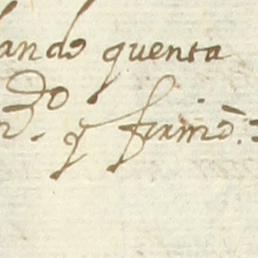 ando quenta
do y firmo